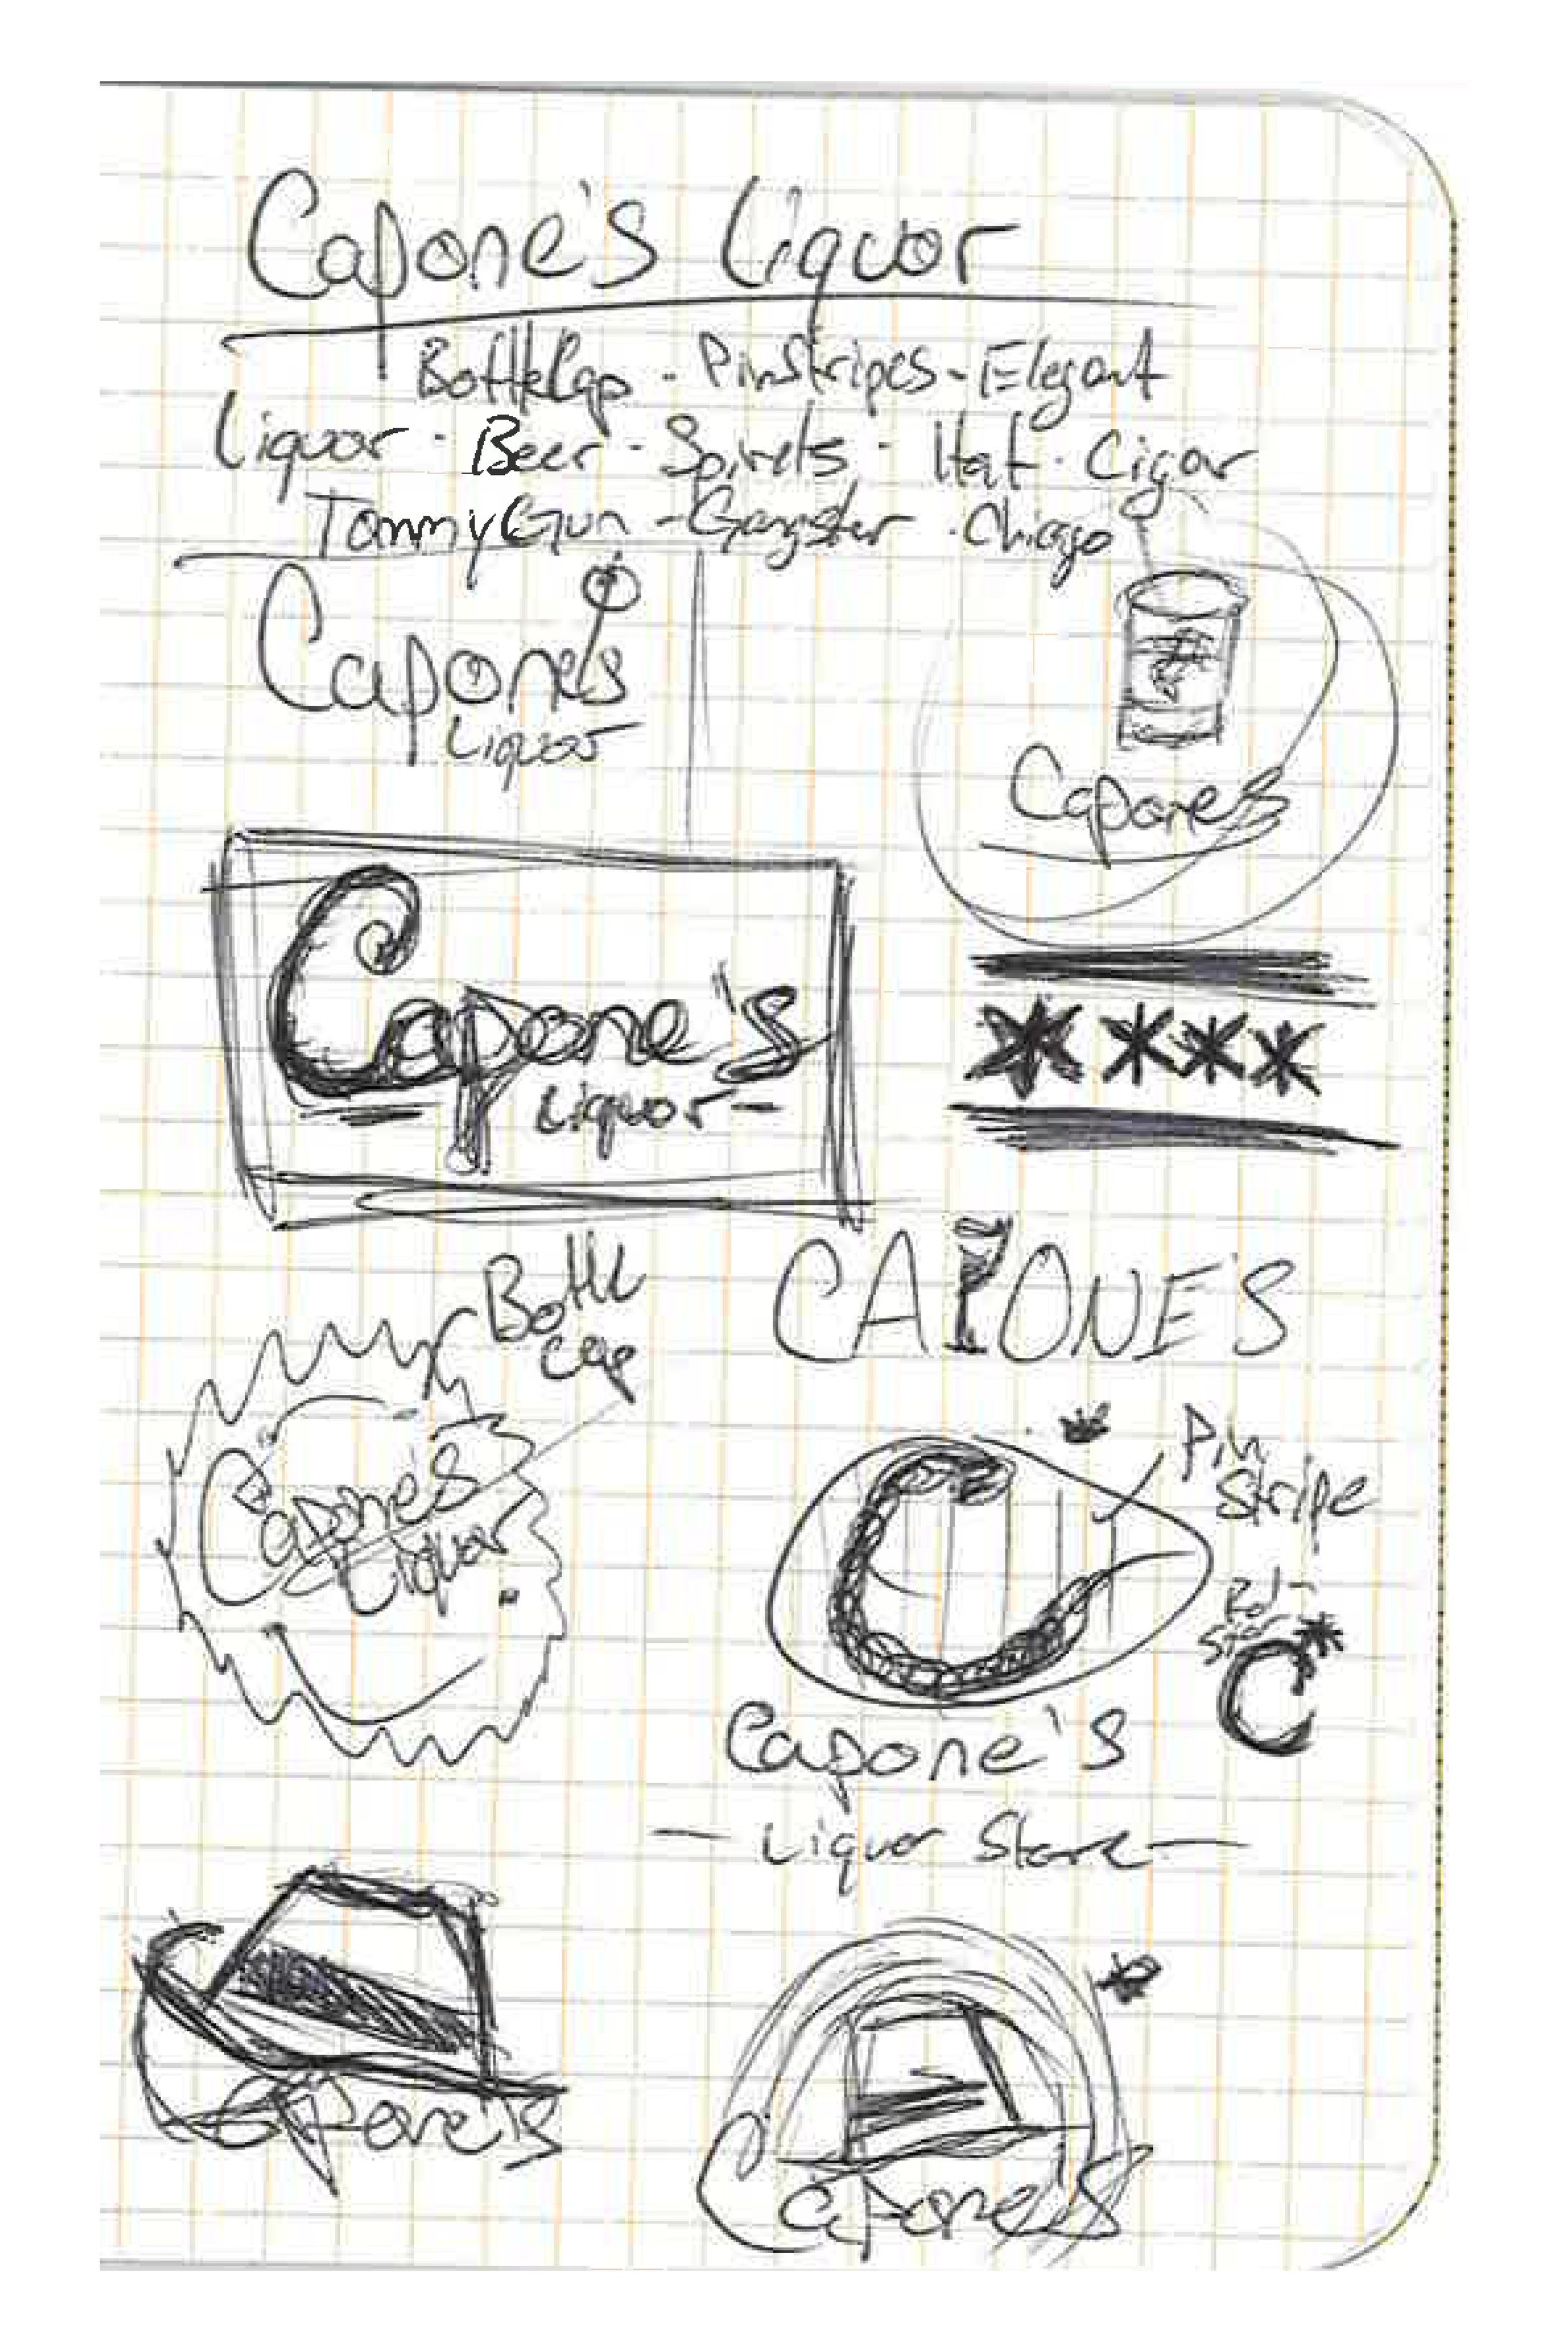 Capone's Liquor
BottleCap - Pinstripes - Elegant
Liquor · Beer · Spirets · Hat · Cigar
TommyGun - Gangster · Chicago
Capone's
Liquor
Capone's
Capone's
Liquor -
Bottle
Cap
CAPONE'S
Capone's
Liquor
Pin
Stripe
C
C
Capone's
- Liquor Store -
Capone's
Capone's